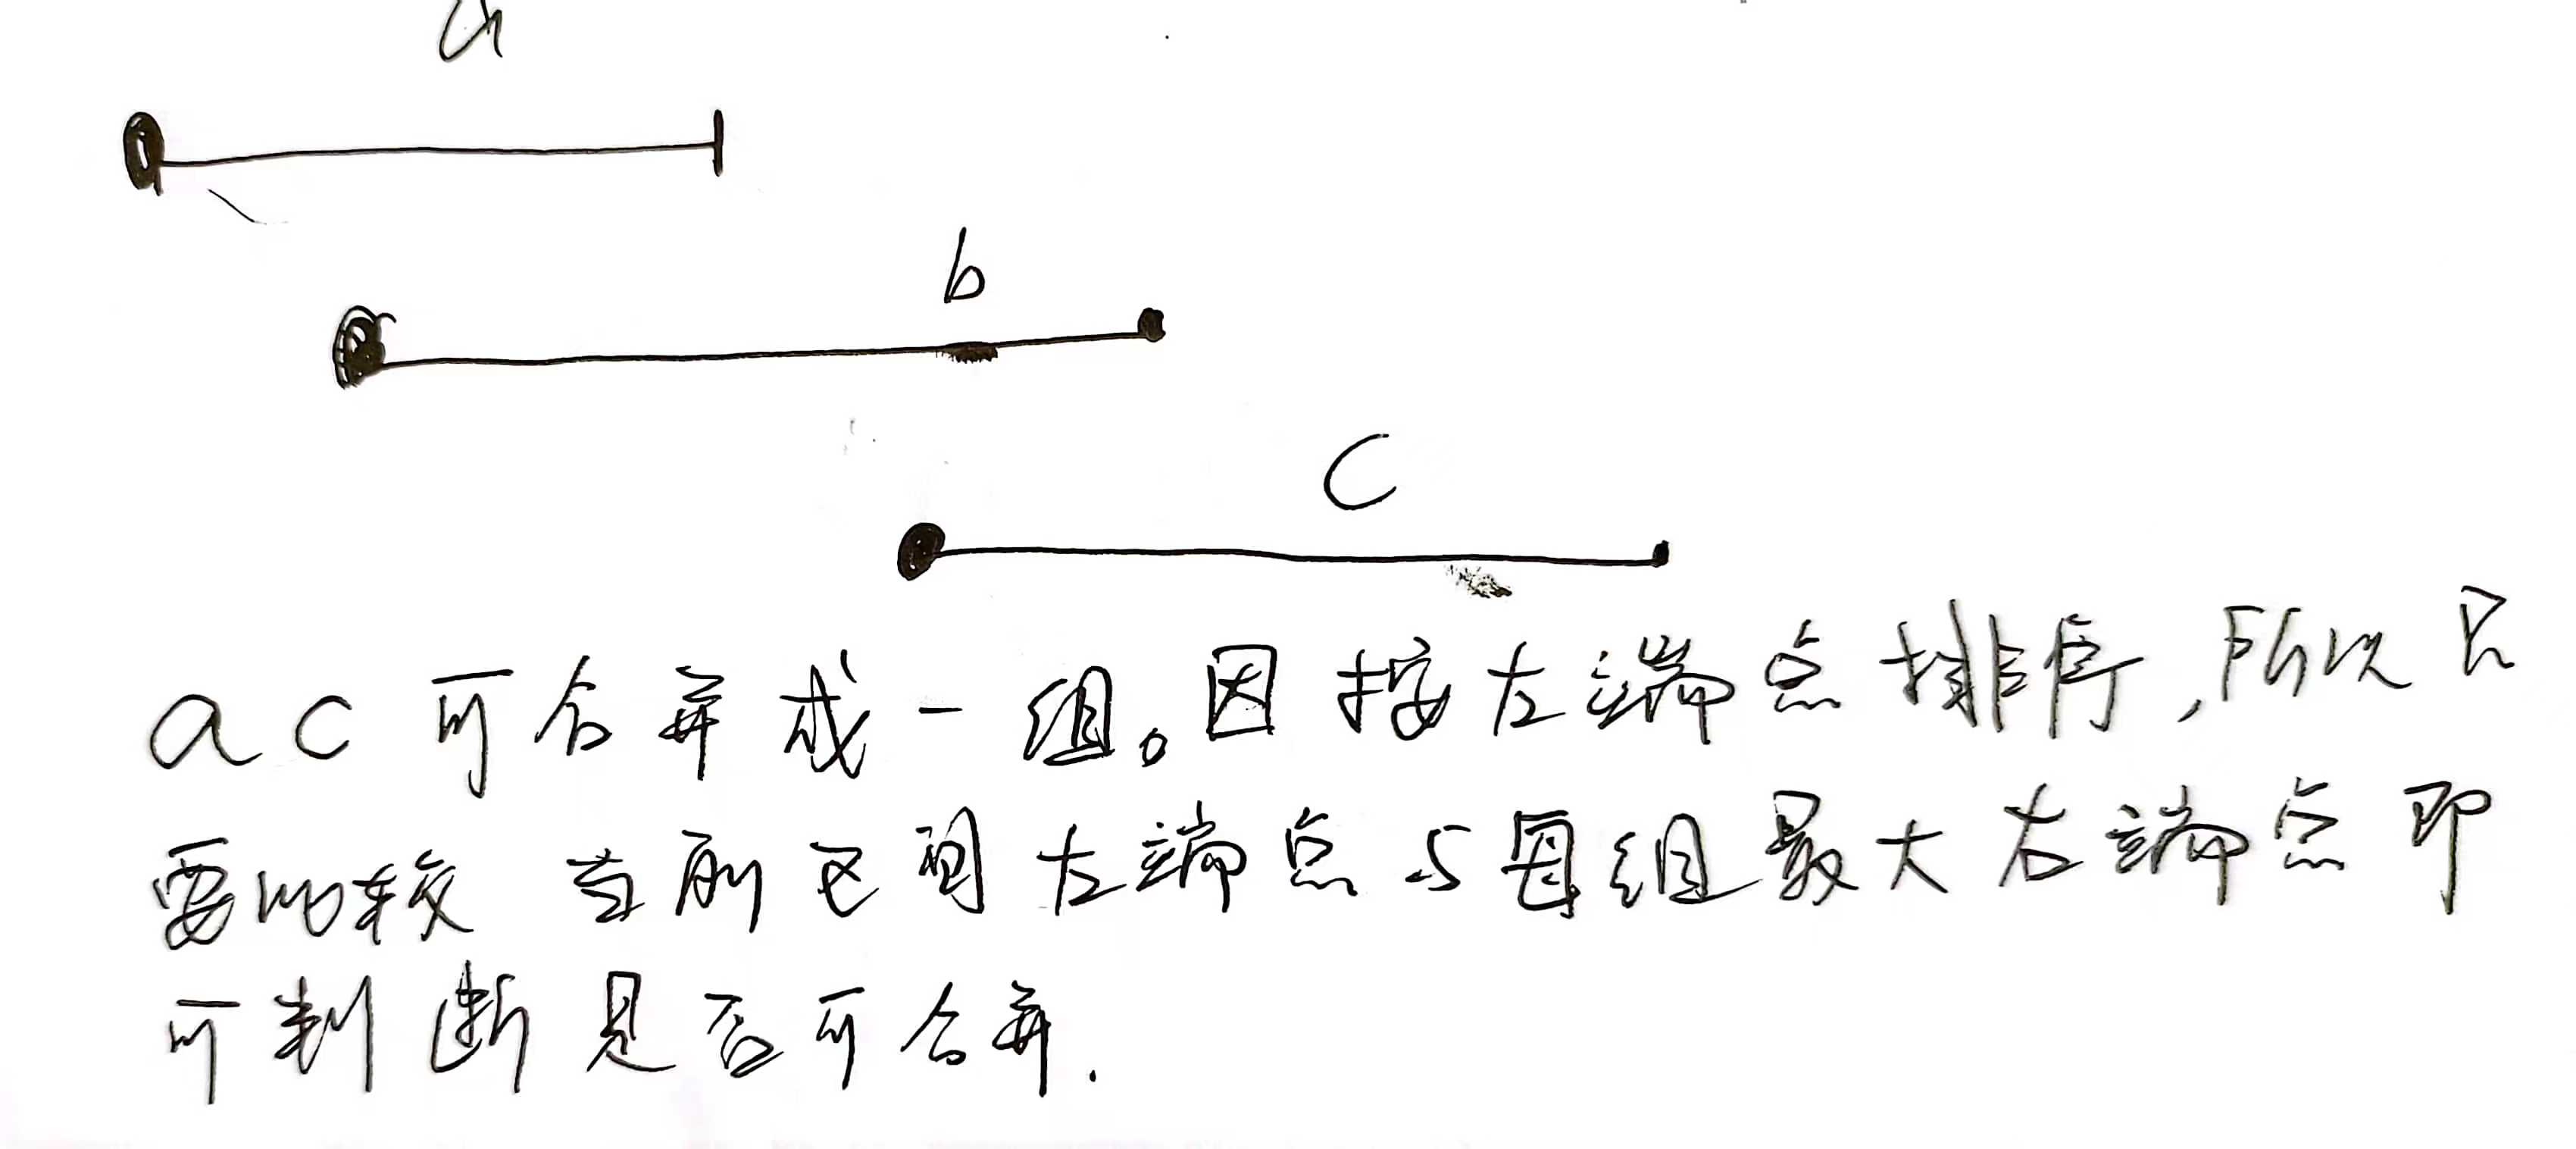 a
b
c
ac可合并成一组。因按左端点排序,所以只
要比较当前区间左端点与每组最大右端点即
可判断是否可合并.